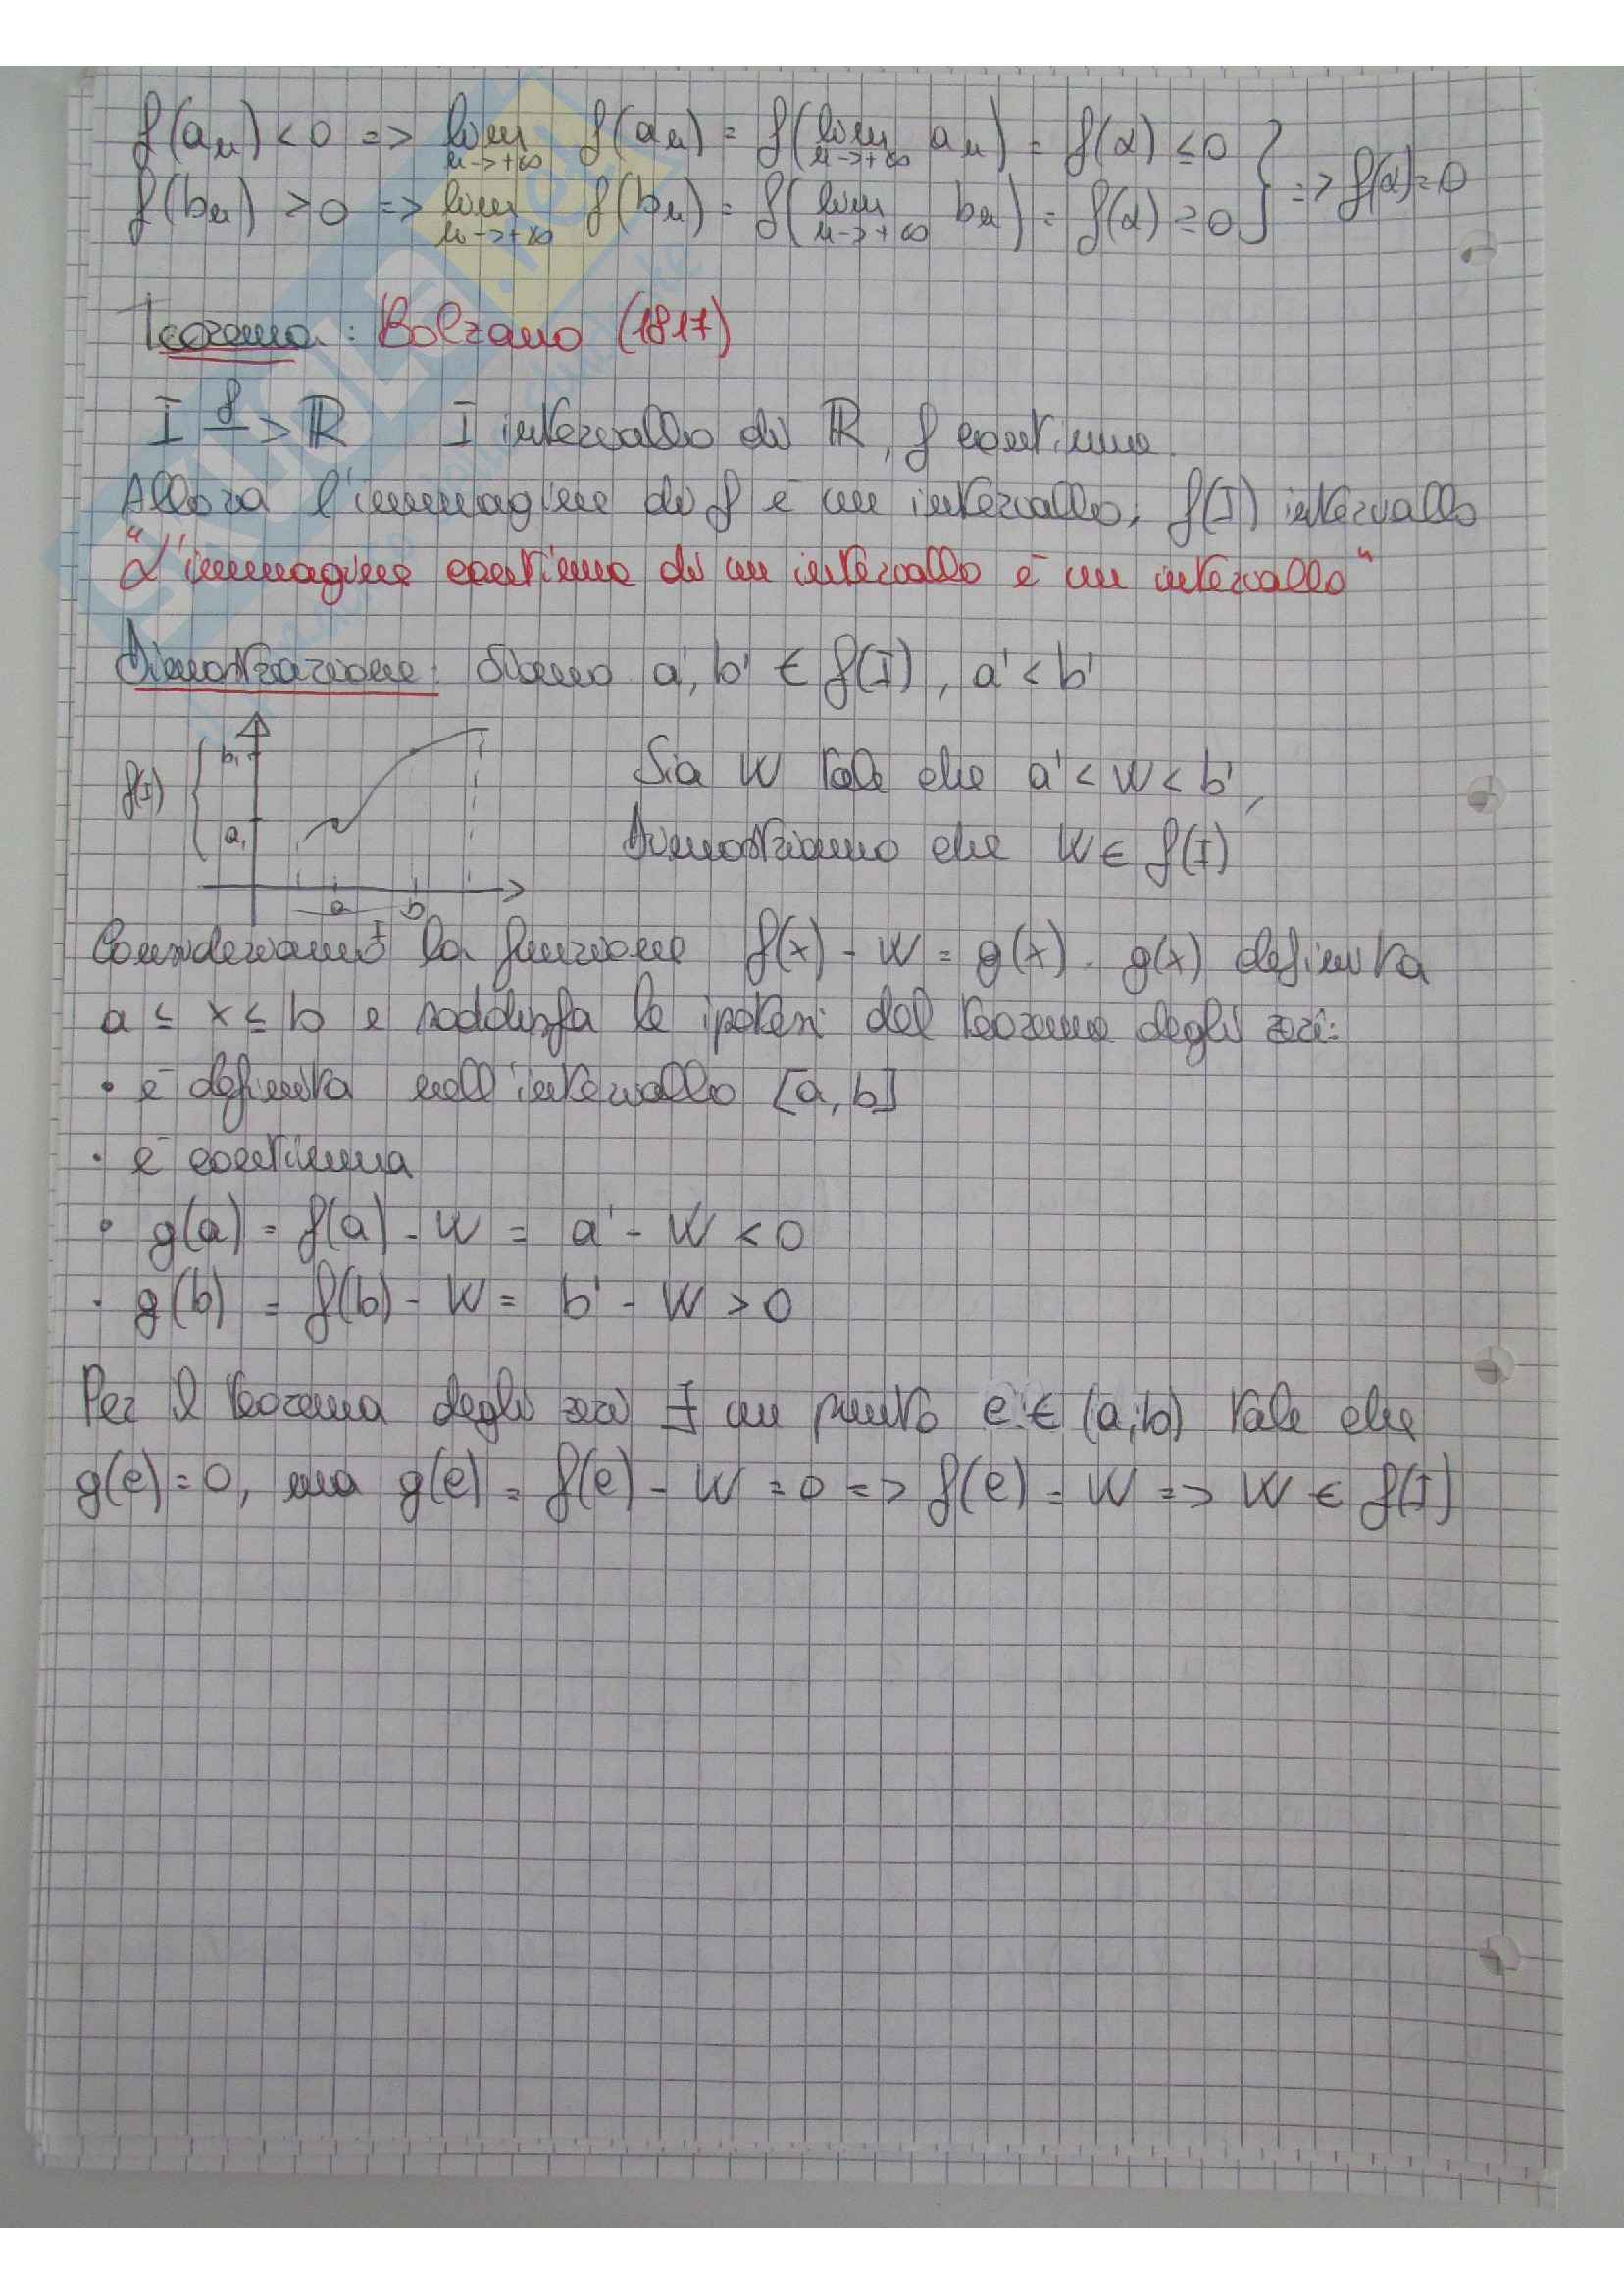 f(aₙ) < 0 => lim n->+∞ f(aₙ) = f(lim n->+∞ aₙ) = f(α) ≤ 0 } => f(α) = 0
f(bₙ) > 0 => lim n->+∞ f(bₙ) = f(lim n->+∞ bₙ) = f(α) ≥ 0
Teorema: Bolzano (1817)
I f-> ℝ I intervallo di ℝ, f continua.
Allora l'immagine di f è un intervallo, f(I) intervallo
"L'immagine continua di un intervallo è un intervallo"
Dimostrazione: Siano a', b' ∈ f(I), a' < b'
f(I) { b' a' a b I
Sia W tale che a' < W < b',
Dimostriamo che W ∈ f(I)
Consideriamo la funzione f(x) - W = g(x). g(x) definita
a ≤ x ≤ b e soddisfa le ipotesi del teorema degli zeri:
• è definita nell'intervallo [a, b]
• è continua
• g(a) = f(a) - W = a' - W < 0
• g(b) = f(b) - W = b' - W > 0
Per il teorema degli zeri ∃ un punto c ∈ (a, b) tale che
g(c) = 0, ma g(c) = f(c) - W = 0 => f(c) = W => W ∈ f(I)